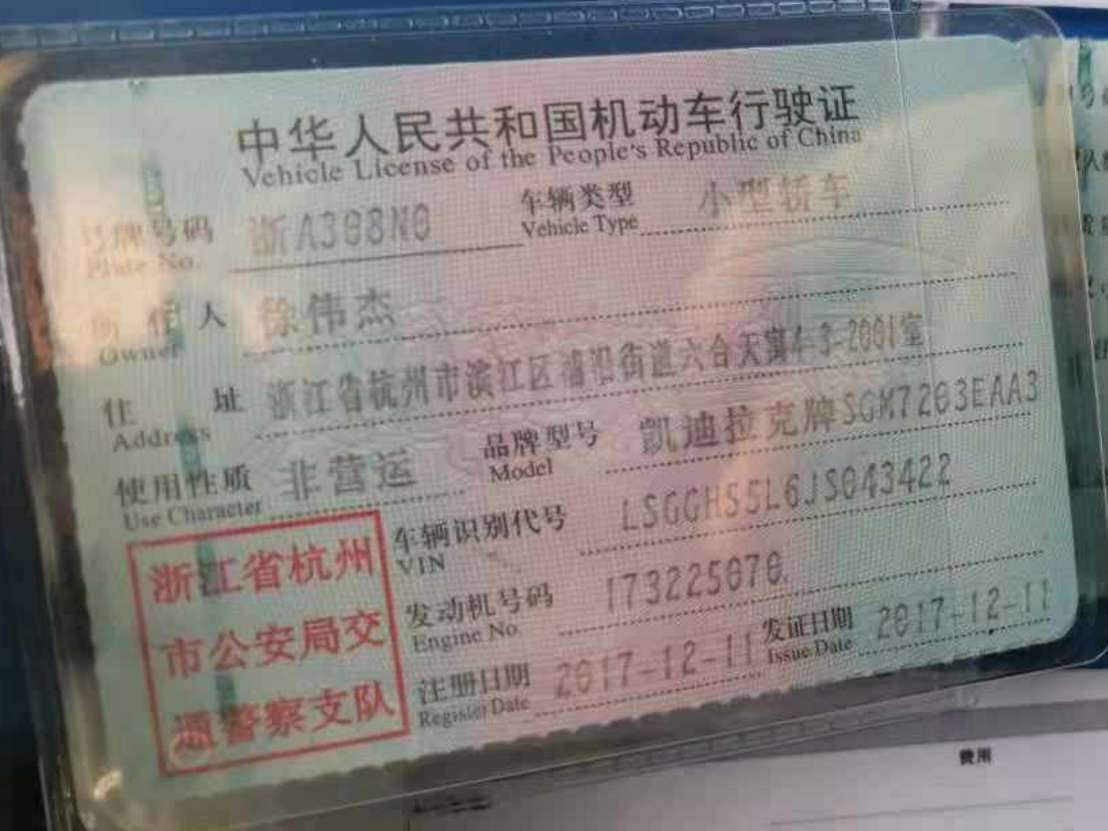 中华人民共和国机动车行驶证
Vehicle License of the People's Republic of China
号牌号码 浙A308N0 车辆类型 小型轿车
Plate No. Vehicle Type
所有人 徐伟杰
Owner
住址 浙江省杭州市滨江区浦沿街道六合天寓4-3-2001室
Address
使用性质 非营运 品牌型号 凯迪拉克牌SGM7203EAA3
Use Character Model
车辆识别代号 LSGGH55L6JS043422
VIN
发动机号码 173225070
Engine No.
注册日期 2017-12-11 发证日期 2017-12-11
Register Date Issue Date
浙江省杭州
市公安局交
通警察支队
费用